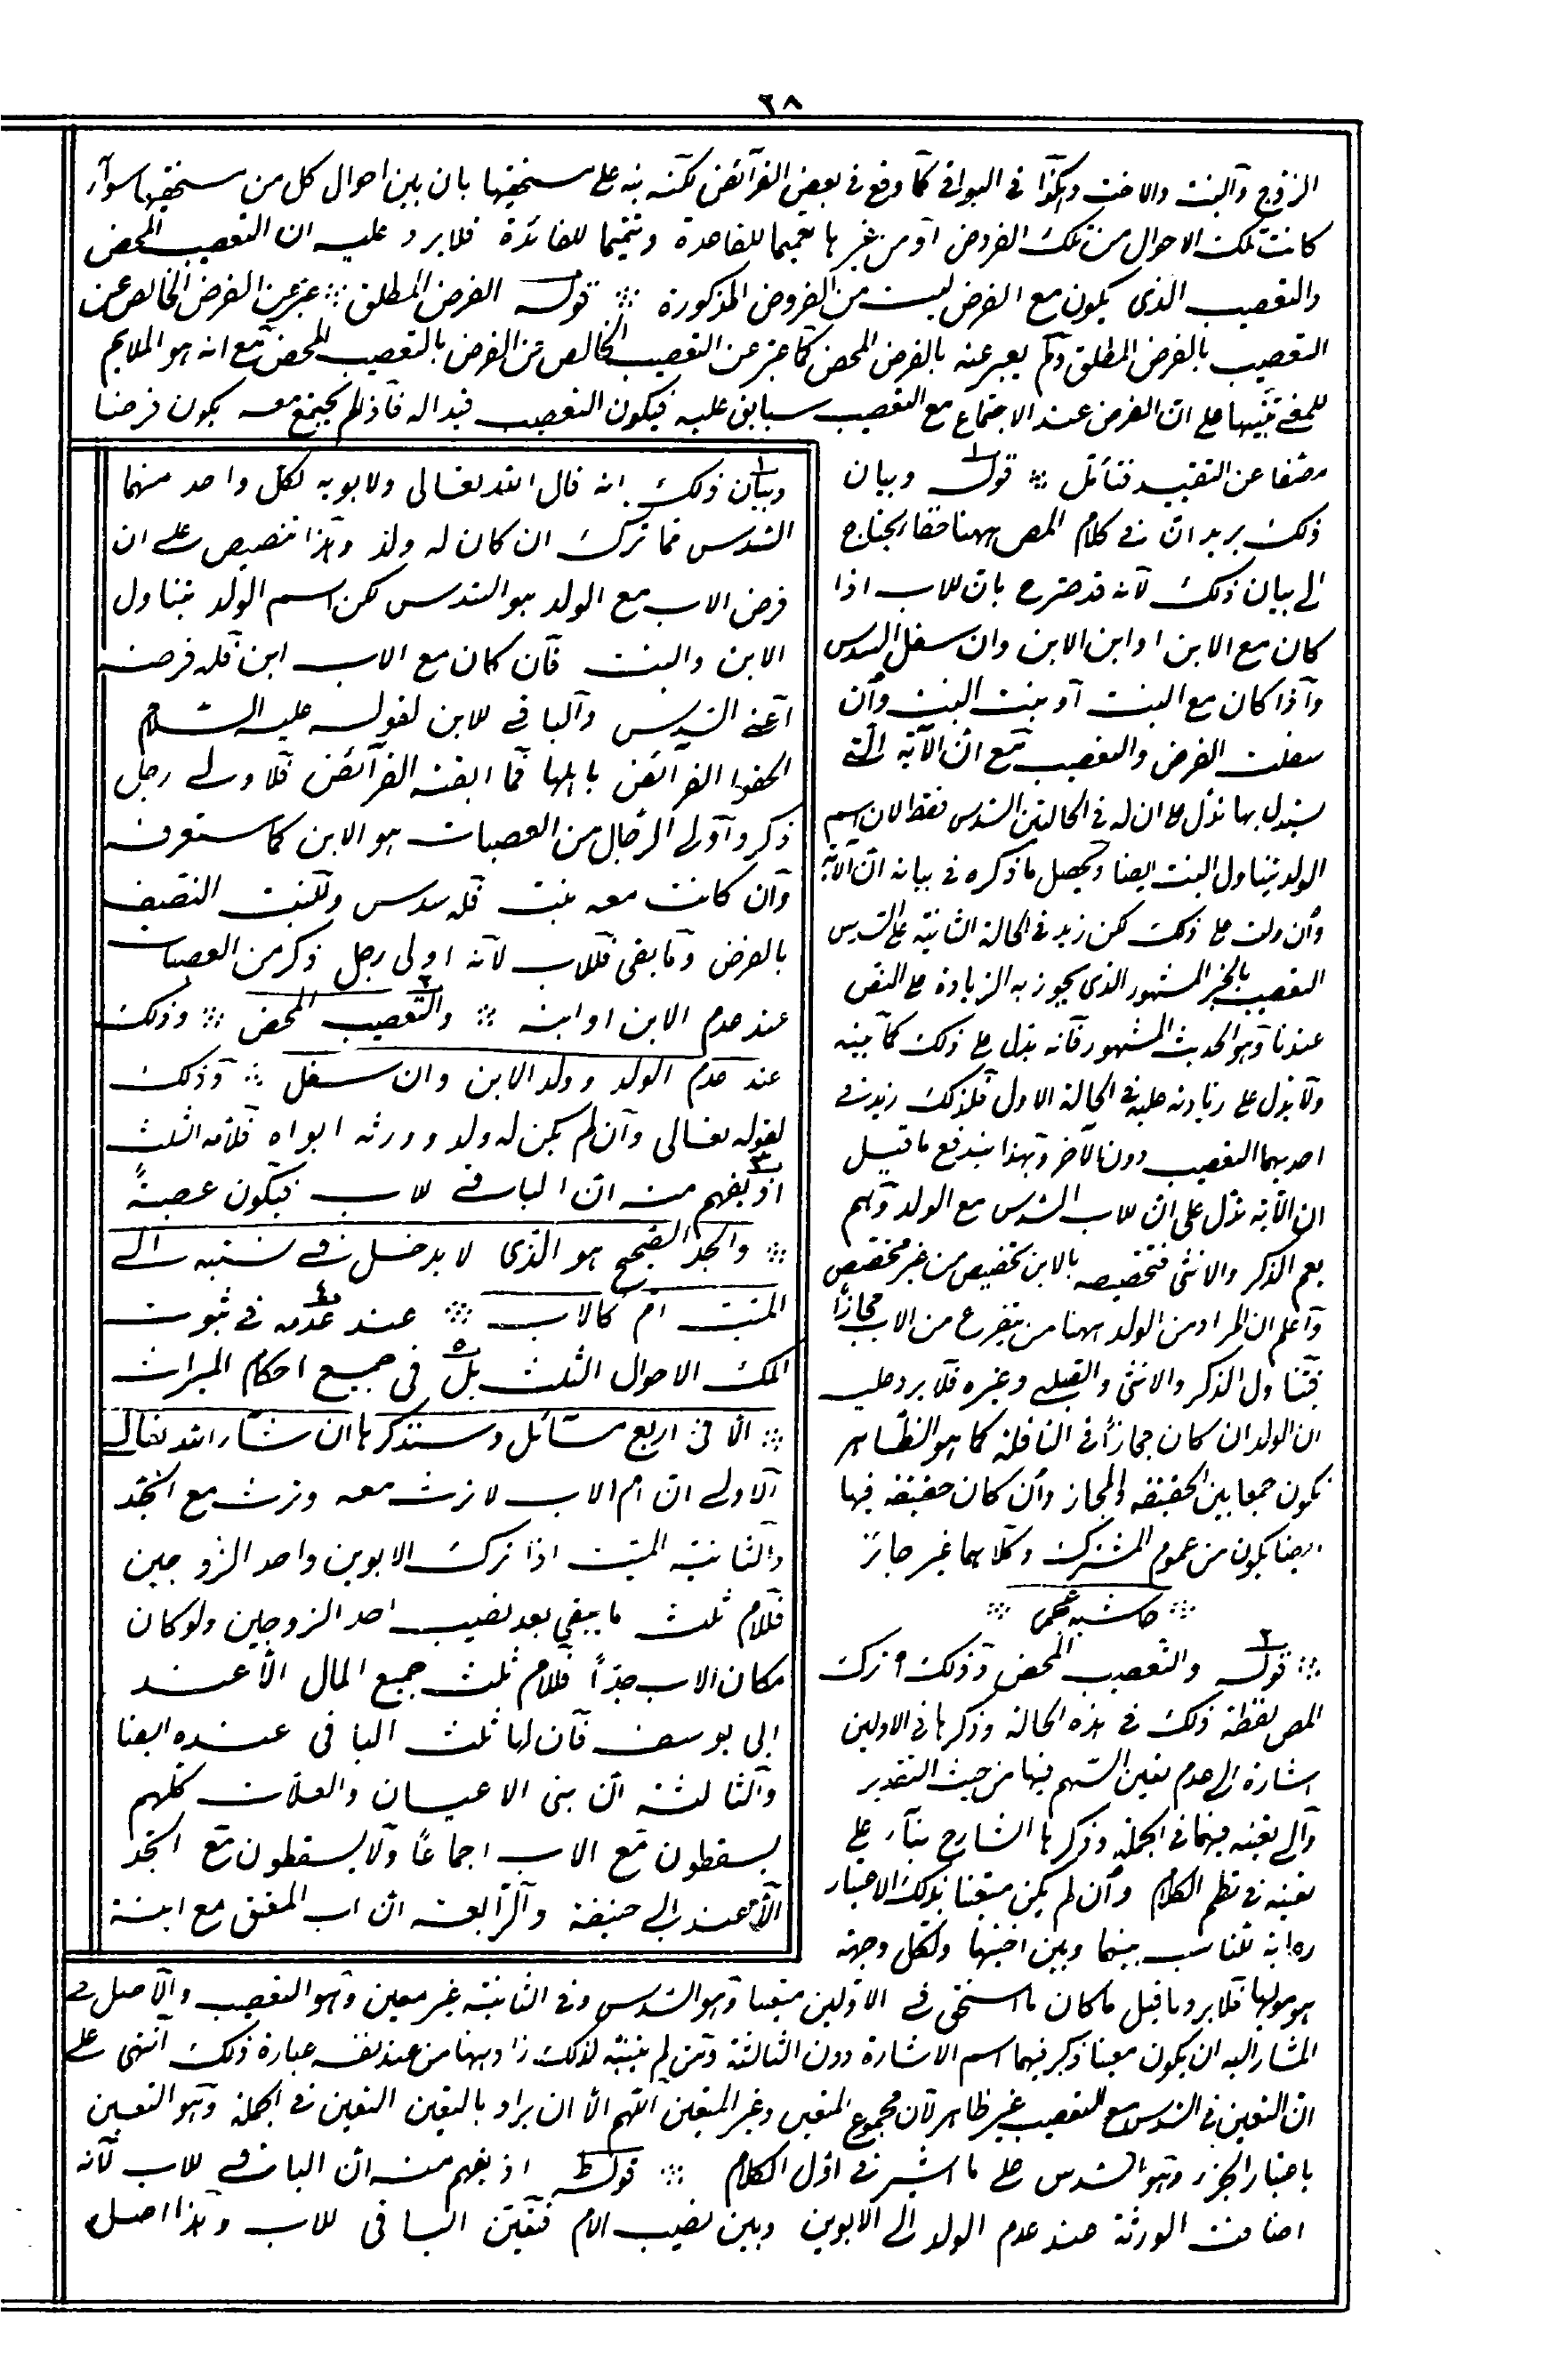 ٦٨
الزوج والبنت والاخت وهكذا فى البواقى كما وقع فى بعض الفرائض لكنه نبه على مستحقيها بان بين احوال كل من مستحقيها سواء
كانت تلك الاحوال من تلك الفروض او من غيرها تعميما للقاعدة وتتميما للفائدة فلا يرد عليه ان التعصيب المحض
والتعصيب الذى يكون مع الفرض ليست من الفروض المذكورة قوله الفرض المطلق عبر عن الفرض الخالص عن
التعصيب بالفرض المطلق ولم يعبر عنه بالفرض المحض كما عبر عن التعصيب الخالص من الفرض بالتعصيب المحض مع انه هو الملايم
للمعنى تنبيها على ان الفرض عند الاجتماع مع التعصيب سابق عليه فيكون التعصيب قيدا له فاذا لم يجتمع معه يكون فرضا
مثقفا عن التقييد فتأمل ١ قوله وبيان
ذلك يريد ان فى كلام المص ههنا خفا يحتاج
الى بيان ذلك لانه قد صرح بان للاب اذا
كان مع الابن او ابن الابن وان سفل السدس
واذا كان مع البنت او بنت البنت وان
سفلت الفرض والتعصيب مع ان الآية التى
يستدل بها تدل على ان له فى الحالتين السدس فقط لان اسم
الولد يتناول البنت ايضا ومحصل ما ذكره فى بيانه ان الآية
وان دلت على ذلك لكن زيد فى الحالة الثانية على السدس
التعصيب بالخبر المشهور الذى يجوز به الزيادة على النص
عندنا وهو الحديث المشهور فانه يدل على ذلك كما بينه
ولا يدل على زيادته عليه فى الحالة الاولى فلذلك زيد فى
احديهما التعصيب دون الآخر وبهذا يندفع ما قيل
ان الآية تدل على ان للاب السدس مع الولد وانه
يعم الذكر والانثى فتخصيصه بالابن تخصيص من غير مخصص
واعلم ان المراد من الولد ههنا من يتفرع من الاب مجازا
فيتناول الذكر والانثى والصلبى وغيره فلا يرد عليه
ان الولد ان كان مجازا فى النافلة كما هو الظاهر
يكون جمعا بين الحقيقة والمجاز وان كان حقيقة فيها
ايضا يكون من عموم المشترك وكلاهما غير جائز
حاشيه
٢ قوله والتعصيب المحض وذلك ترك
المص لفظة ذلك فى هذه الحالة وذكرها فى الاولين
اشارة الى عدم تعين السهم فيها من حيث التقدير
والى تعينه فيهما فى الجملة وذكرها الشارح بناء على
تعينه فى نظم الكلام وان لم يكن متعينا بذلك الاعتبار
رعاية للتناسب بينها وبين اختيها ولكل وجهة
هو موليها فلا يرد ما قيل ما كان ما استحق فى الاولين متعينا وهو السدس وفى الثانية غير معين وهو التعصيب والاصل فى
المشار اليه ان يكون معينا ذكر فيهما اسم الاشارة دون الثالثة ومن لم يتنبه لذلك زاد ههنا من عند نفسه عبارة ذلك انتهى على
ان التعين فى السدس مع التعصيب غير ظاهر لان مجموع المتعين وغير المتعين اللهم الا ان يراد بالتعين التعين فى الجملة وهو التعين
باعتبار الجزء وهو السدس على ما اشير فى اول الكلام قوله اذ يفهم منه ان الباقى للاب لانه
اضافت الورثة عند عدم الولد الى الابوين وبين نصيب الام فتعين الباقى للاب وهذا اصل
١ وبيان ذلك انه قال الله تعالى ولابويه لكل واحد منهما
السدس مما ترك ان كان له ولد وهذا تنصيص على ان
فرض الاب مع الولد هو السدس لكن اسم الولد يتناول
الابن والبنت فان كان مع الاب ابن فله فرضه
اعنى السدس والباقى للابن لقوله عليه السلام
الحقوا الفرائض باهلها فما ابقته الفرائض فلاولى رجل
ذكر واولى الرجال من العصبات هو الابن كما ستعرف
وان كانت معه بنت فله سدس وللبنت النصف
بالفرض وما بقى فللاب لانه اولى رجل ذكر من العصبات
عند عدم الابن او ابنه ٢ والتعصيب المحض وذلك
عند عدم الولد وولد الابن وان سفل وذلك
لقوله تعالى وان لم يكن له ولد وورثه ابواه فلامه الثلث
٣ اذ يفهم منه ان الباقى للاب فيكون عصبة
والجد الصحيح هو الذى لا يدخل فى نسبته الى
الميت ام كالاب عند عدمه ٤ فى ثبوت
تلك الاحوال الثلث بل ٥ فى جميع احكام الميراث
الا فى اربع مسائل وستذكرها ان شاء الله تعالى
الاولى ان ام الاب لا ترث معه وترث مع الجد
والثانية الميت اذا ترك الابوين واحد الزوجين
فللام ثلث ما يبقى بعد نصيب احد الزوجين ولو كان
مكان الاب جدا فللام ثلث جميع المال الا عند
ابى يوسف فان لها ثلث الباقى عنده ايضا
والثالثة ان بنى الاعيان والعلات كلهم
يسقطون مع الاب اجماعا ولا يسقطون مع الجد
الا عند ابى حنيفة والرابعة ان اب المعتق مع ابنه